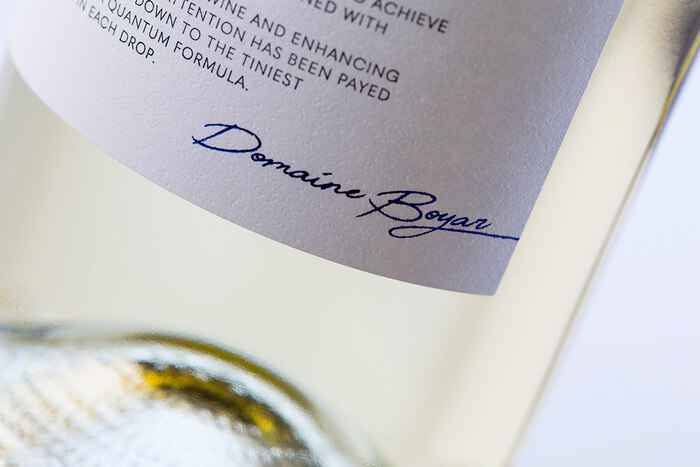 TO ACHIEVE
NED WITH
WINE AND ENHANCING
ATTENTION HAS BEEN PAYED
DOWN TO THE TINIEST
QUANTUM FORMULA.
IN EACH DROP.
Domaine Boyar